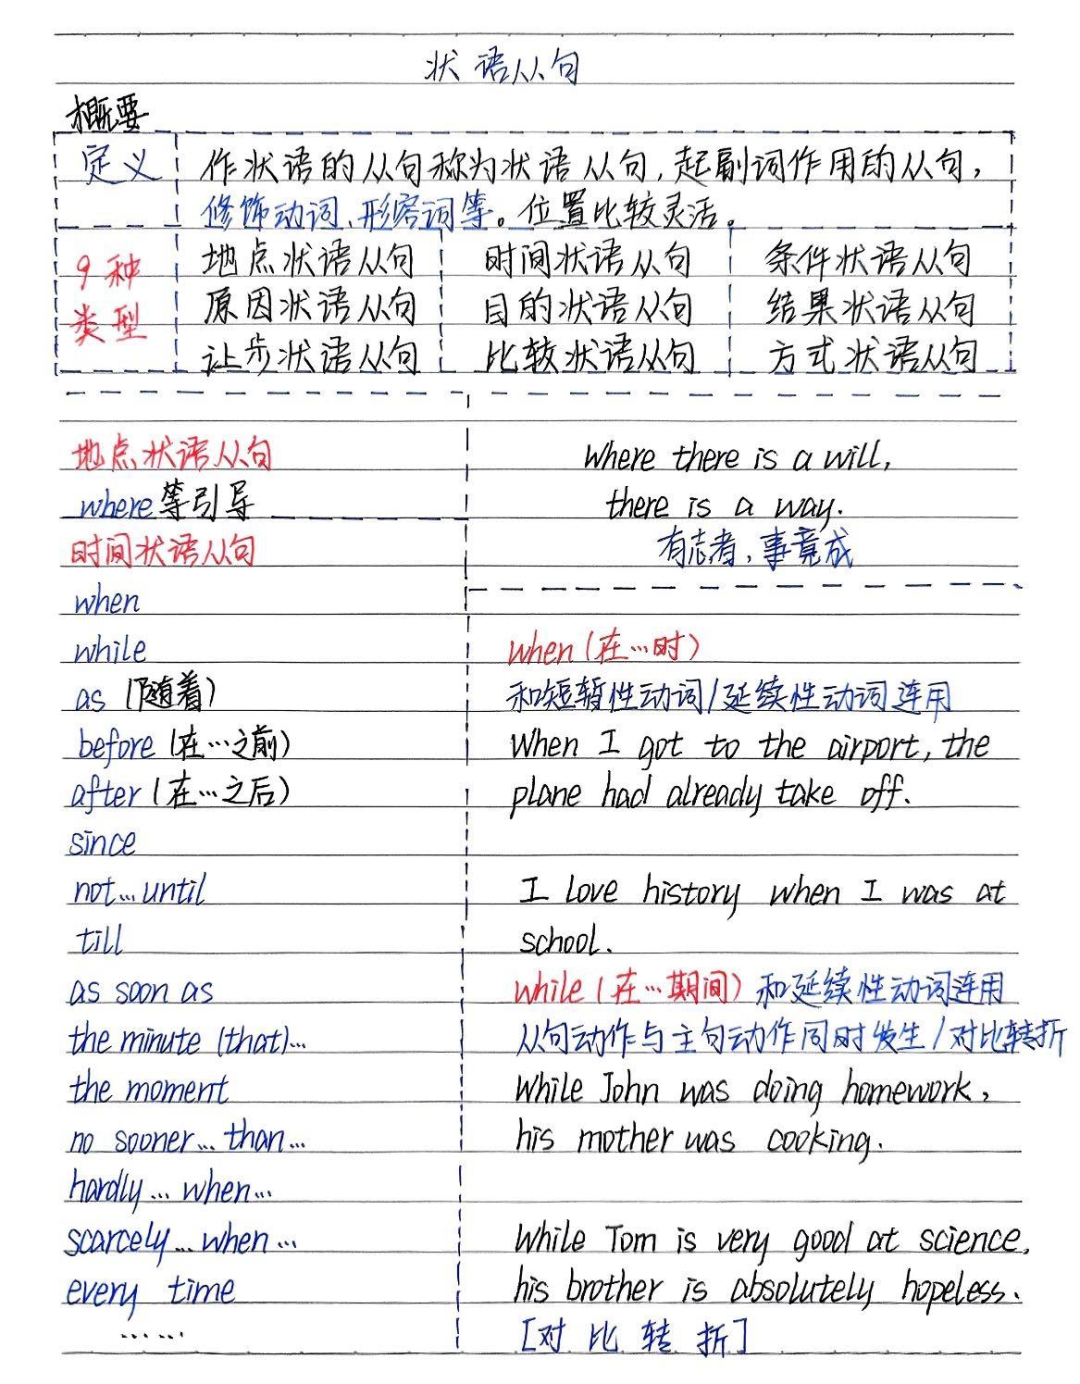 状语从句
概要
定义 作状语的从句称为状语从句,起副词作用的从句,
修饰动词、形容词等。位置比较灵活。
9种类型
地点状语从句 时间状语从句 条件状语从句
原因状语从句 目的状语从句 结果状语从句
让步状语从句 比较状语从句 方式状语从句
地点状语从句
where等引导
Where there is a will,
there is a way.
有志者,事竟成
时间状语从句
when
while
as (随着)
before (在…之前)
after (在…之后)
since
not…until
till
as soon as
the minute (that)…
the moment
no sooner…than…
hardly…when…
scarcely…when…
every time
……
when (在…时)
和短暂性动词/延续性动词连用
When I got to the airport, the
plane had already take off.
I love history when I was at
school.
while (在…期间) 和延续性动词连用
从句动作与主句动作同时发生/对比转折
While John was doing homework,
his mother was cooking.
While Tom is very good at science,
his brother is absolutely hopeless.
[对比转折]